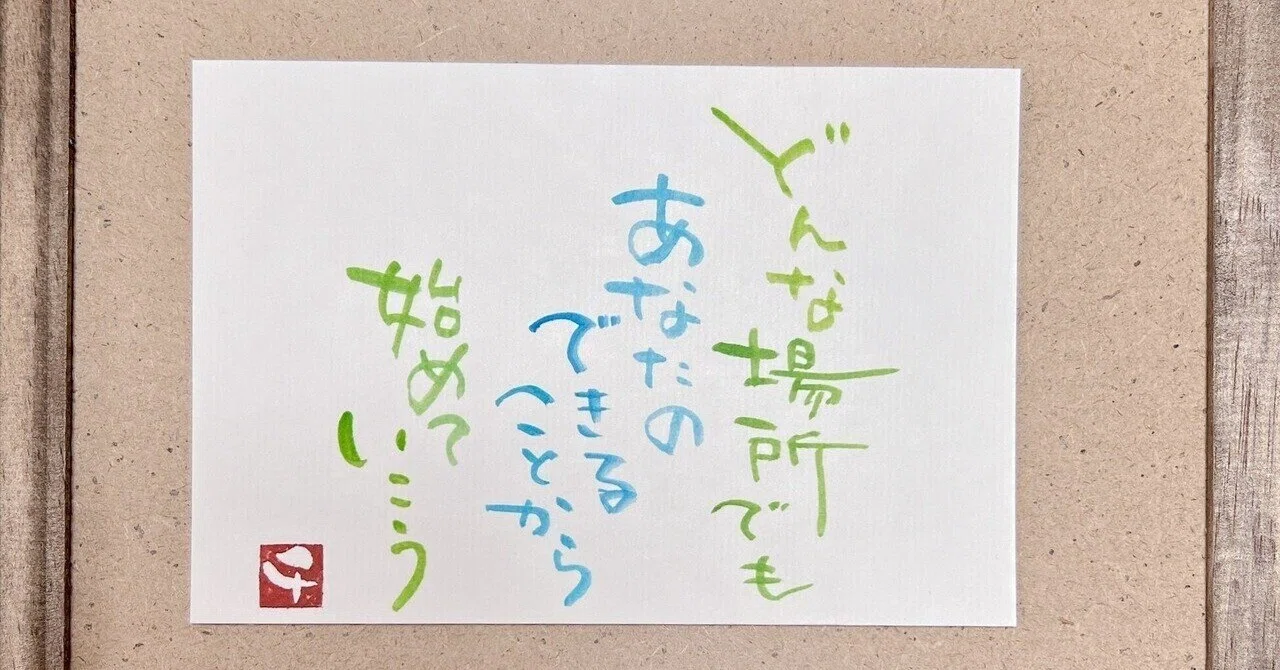 どんな場所でも
あなたの
できる
ことから
始めて
いこう